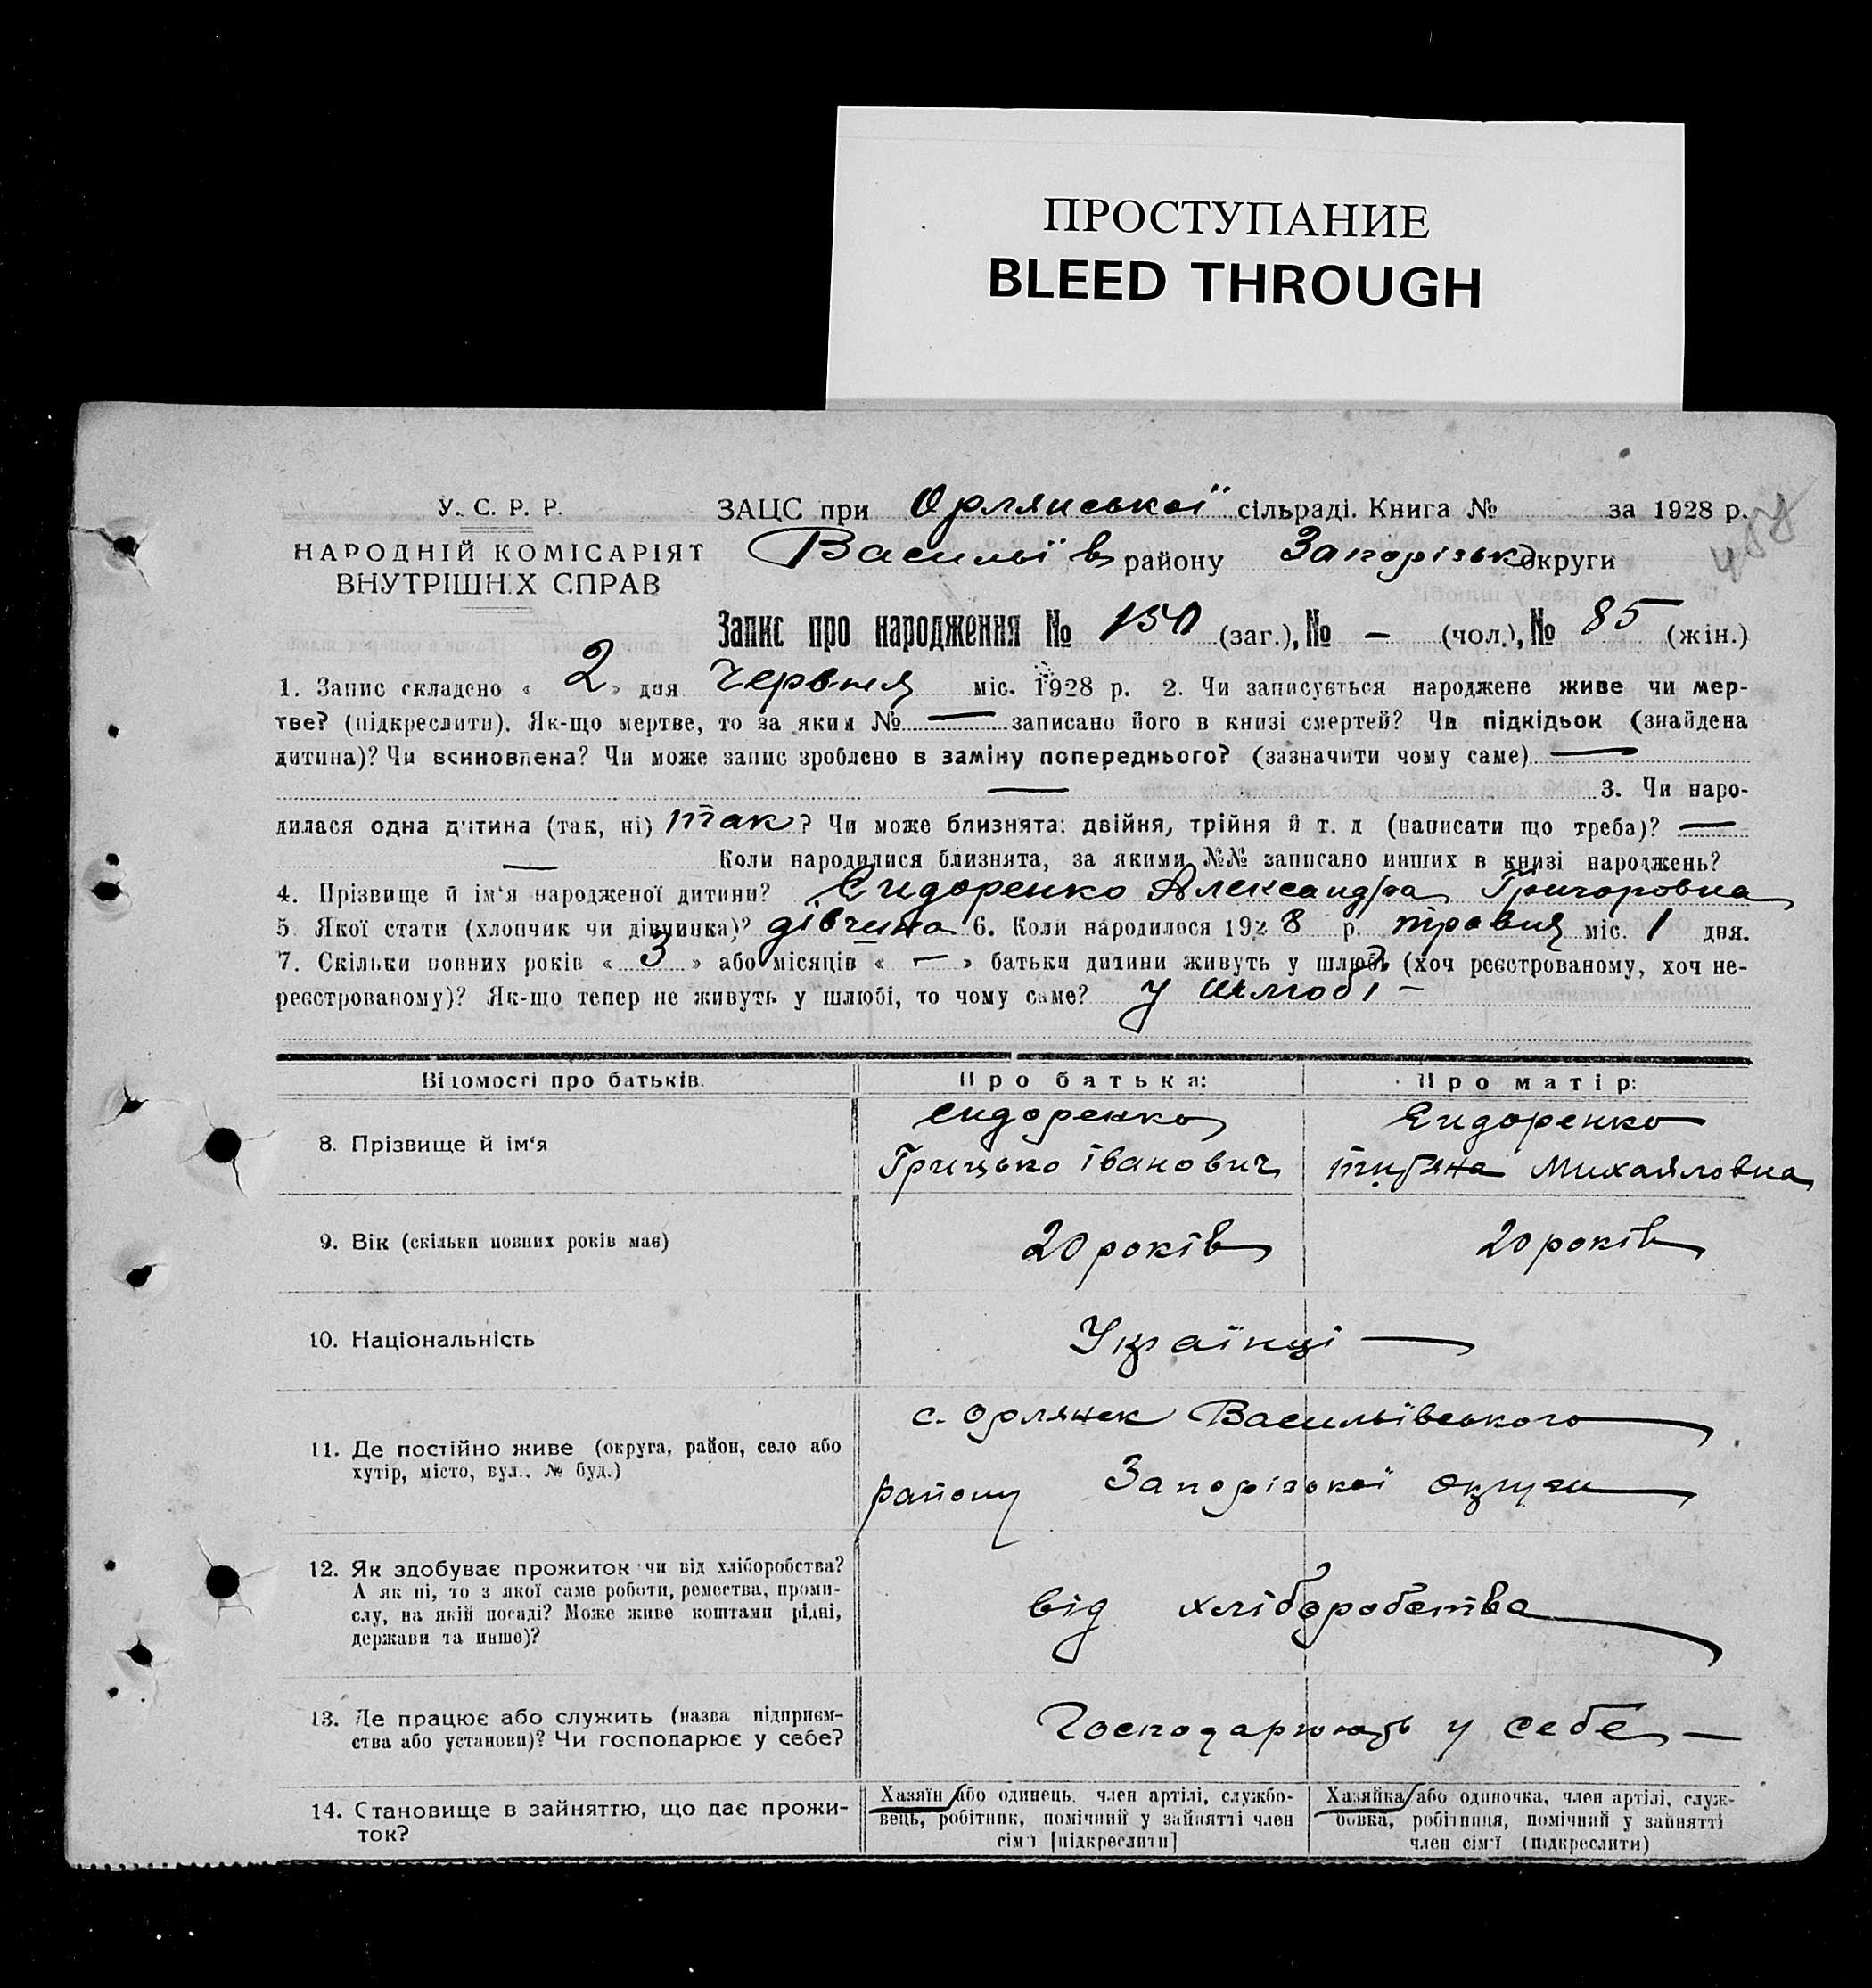 ПРОСТУПАНИЕ
BLEED THROUGH
У. С. Р. Р.
НАРОДНІЙ КОМІСАРІЯТ
ВНУТРІШНІХ СПРАВ
ЗАЦС при Орлянської сільраді. Книга № за 1928 р.
Васильїв району Запорізьк округи
Запис про народження № 150 (заг.), № — (чол.), № 85 (жін.)
1. Запис складено « 2 » дня червня міс. 1928 р. 2. Чи записується народжене живе чи мер-
тве? (підкреслити). Як-що мертве, то за яким № — записано його в книзі смертей? Чи підкідьок (знайдена
дитина)? Чи всиновлена? Чи може запис зроблено в заміну попереднього? (зазначити чому саме) —
— 3. Чи наро-
дилася одна дитина (так, ні) так? Чи може близнята: двійня, трійня й т. д (написати що треба)? —
— Коли народилися близнята, за якими №№ записано инших в книзі народжень?
4. Прізвище й ім'я народженої дитини? Сидоренко Александра Григоровна
5. Якої стати (хлопчик чи дівчинка)? дівчина 6. Коли народилося 1928 р. травня міс. 1 дня.
7. Скільки повних років « 3 » або місяців « — » батьки дитини живуть у шлюбі (хоч реєстрованому, хоч не-
реєстрованому)? Як-що тепер не живуть у шлюбі, то чому саме? У шлюбі —
Відомості про батьків. Про батька: Про матір:
8. Прізвище й ім'я
Сидоренко
Грицько Іванович
Сидоренко
Михайловна
9. Вік (скільки повних років має) 20 років 20 років
10. Національність Українці —
11. Де постійно живе (округа, район, село або
хутір, місто, вул., № буд.)
с. Орлянск Васильївського
району Запорізької округи
12. Як здобуває прожиток чи від хліборобства?
А як ні, то з якої саме роботи, ремества, проми-
слу, на якій посаді? Може живе коштами рідні,
держави та инше)?
від хліборобства
13. Де працює або служить (назва підприєм-
ства або установи)? Чи господарює у себе?
Господарюють у себе —
14. Становище в зайняттю, що дає прожи-
ток?
Хазяїн або одинець, член артілі, службо-
вець, робітник, помічний у зайнятті член
сім'ї [підкреслити]
Хазяйка або одиночка, член артілі, служ-
бовка, робітниця, помічний у зайнятті
член сім'ї (підкреслити)